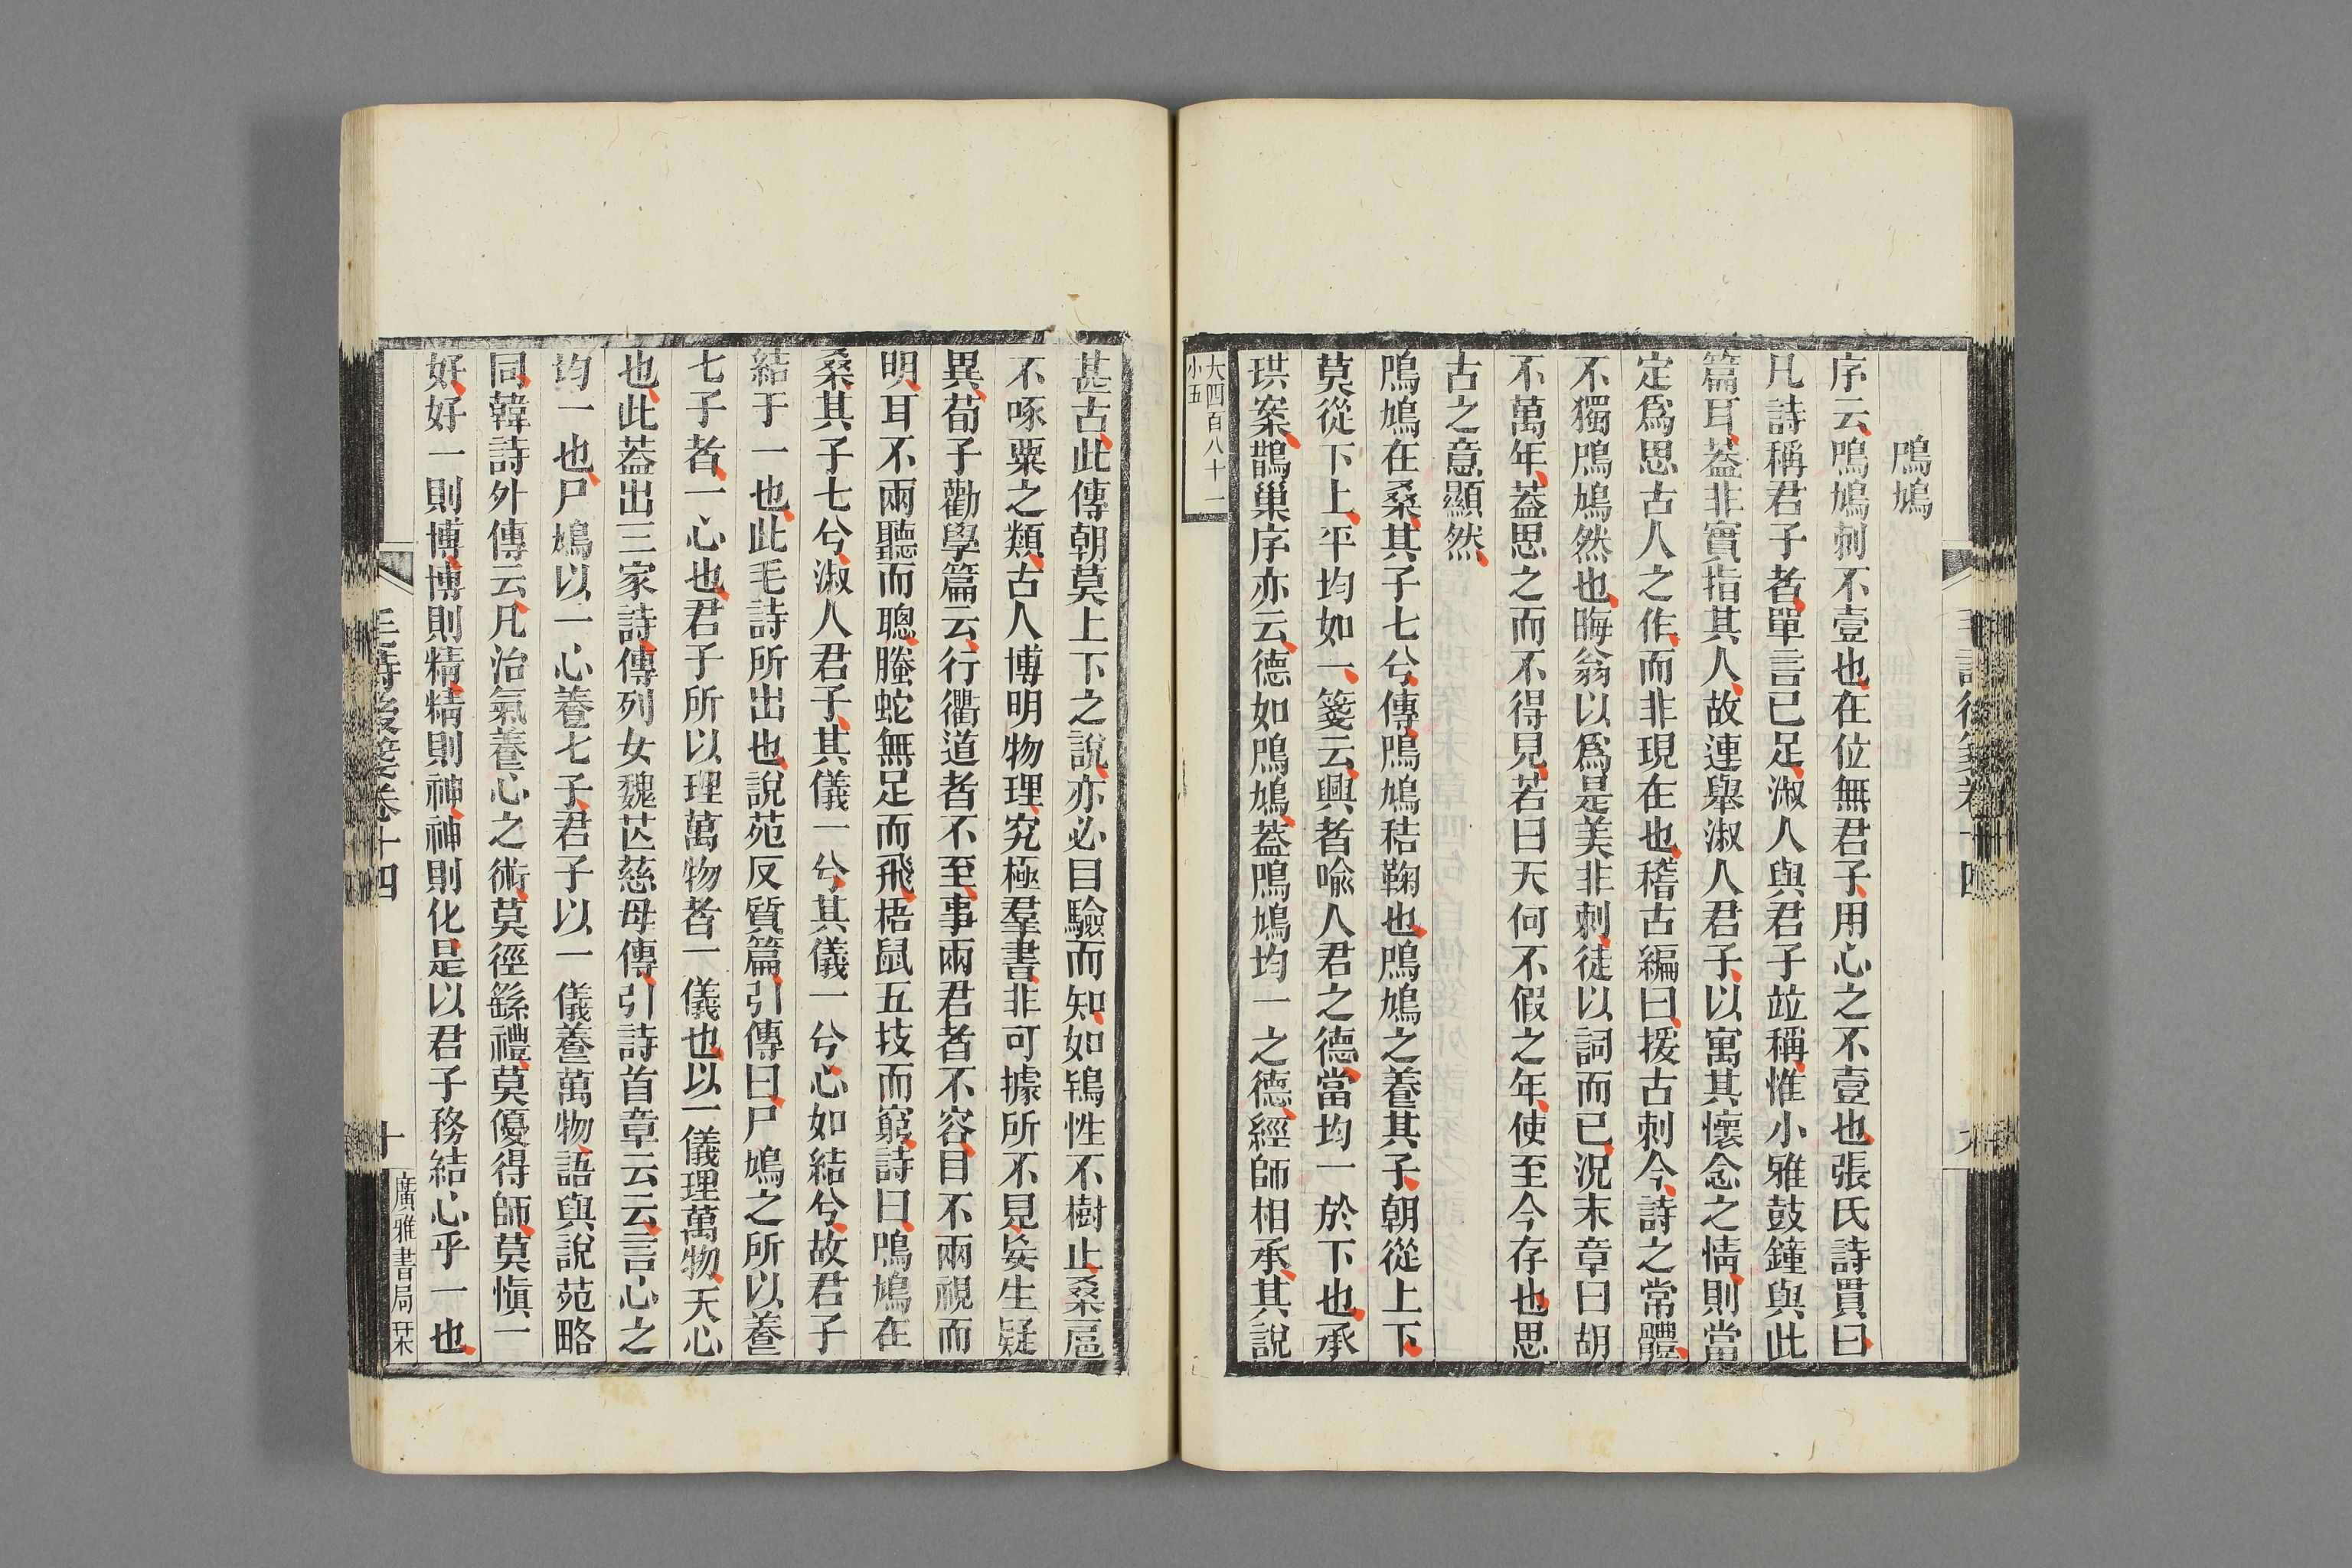 鳲鳩
序云鳲鳩刺不壹也在位無君子用心之不壹也張氏詩貫曰
凡詩稱君子者單言已足淑人與君子竝稱惟小雅鼓鐘與此
篇耳葢非實指其人故連舉淑人君子以寓其懷念之情則當
定爲思古人之作而非現在也稽古編曰援古刺今詩之常體
不獨鳲鳩然也晦翁以爲是美非刺徒以詞而已況末章曰胡
不萬年葢思之而不得見若曰天何不假之年使至今存也思
古之意顯然
鳲鳩在桑其子七兮傳鳲鳩秸鞠也鳲鳩之養其子朝從上下
莫從下上平均如一箋云興者喩人君之德當均一於下也承
珙案鵲巢序亦云德如鳲鳩葢鳲鳩均一之德經師相承其說
大四百八十一
小五
甚古此傳朝莫上下之說亦必目驗而知如鴇性不樹止桑扈
不啄粟之類古人博明物理究極羣書非可據所不見妄生疑
異荀子勸學篇云行衢道者不至事兩君者不容目不兩視而
明耳不兩聽而聰螣蛇無足而飛梧鼠五技而窮詩曰鳲鳩在
桑其子七兮淑人君子其儀一兮其儀一兮心如結兮故君子
結于一也此毛詩所出也說苑反質篇引傳曰尸鳩之所以養
七子者一心也君子所以理萬物者一儀也以一儀理萬物天心
也此葢出三家詩傳列女魏芒慈母傳引詩首章云云言心之
均一也尸鳩以一心養七子君子以一儀養萬物語與說苑略
同韓詩外傳云凡治氣養心之術莫徑繇禮莫優得師莫愼一
好好一則博博則精精則神神則化是以君子務結心乎一也
毛詩後箋卷十四
十
廣雅書局栞